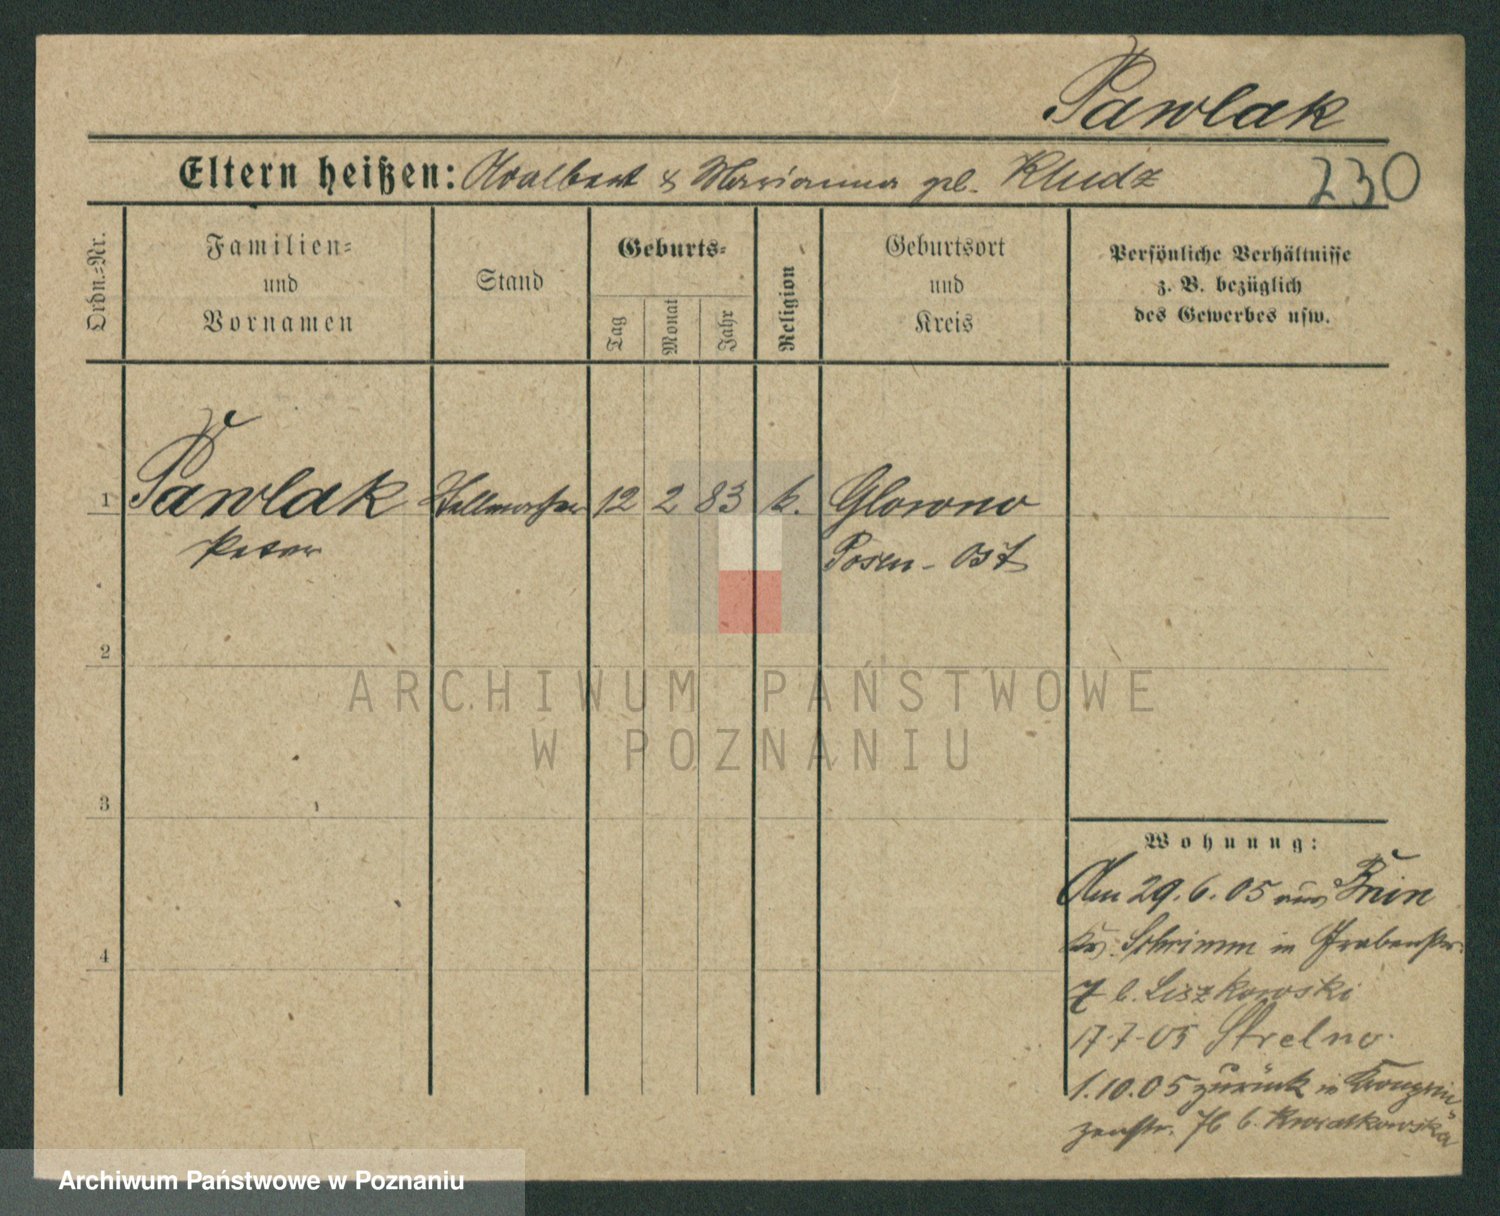 Pawlak
Eltern heißen: Adalbert & Marianna geb. Kludz
230
Ordn.-Nr.
Familien-
und
Vornamen
Stand
Geburts-
Tag
Monat
Jahr
Religion
Geburtsort
und
Kreis
Persönliche Verhältnisse
z. B. bezüglich
des Gewerbes usw.
1 Pawlak Stellmacher 12 2 83 k. Glowno
Peter Posen-Ost
2
3
4
Wohnung:
Am 29.6.05 aus Bnin
Kr. Schrimm in Grabenstr.
7 b. Liszkowski
17.7.05 Strelno.
1.10.05 zurück in Kronprin
zenstr. 76 b. Kwiatkowska
ARCHIWUM PAŃSTWOWE
W POZNANIU
Archiwum Państwowe w Poznaniu